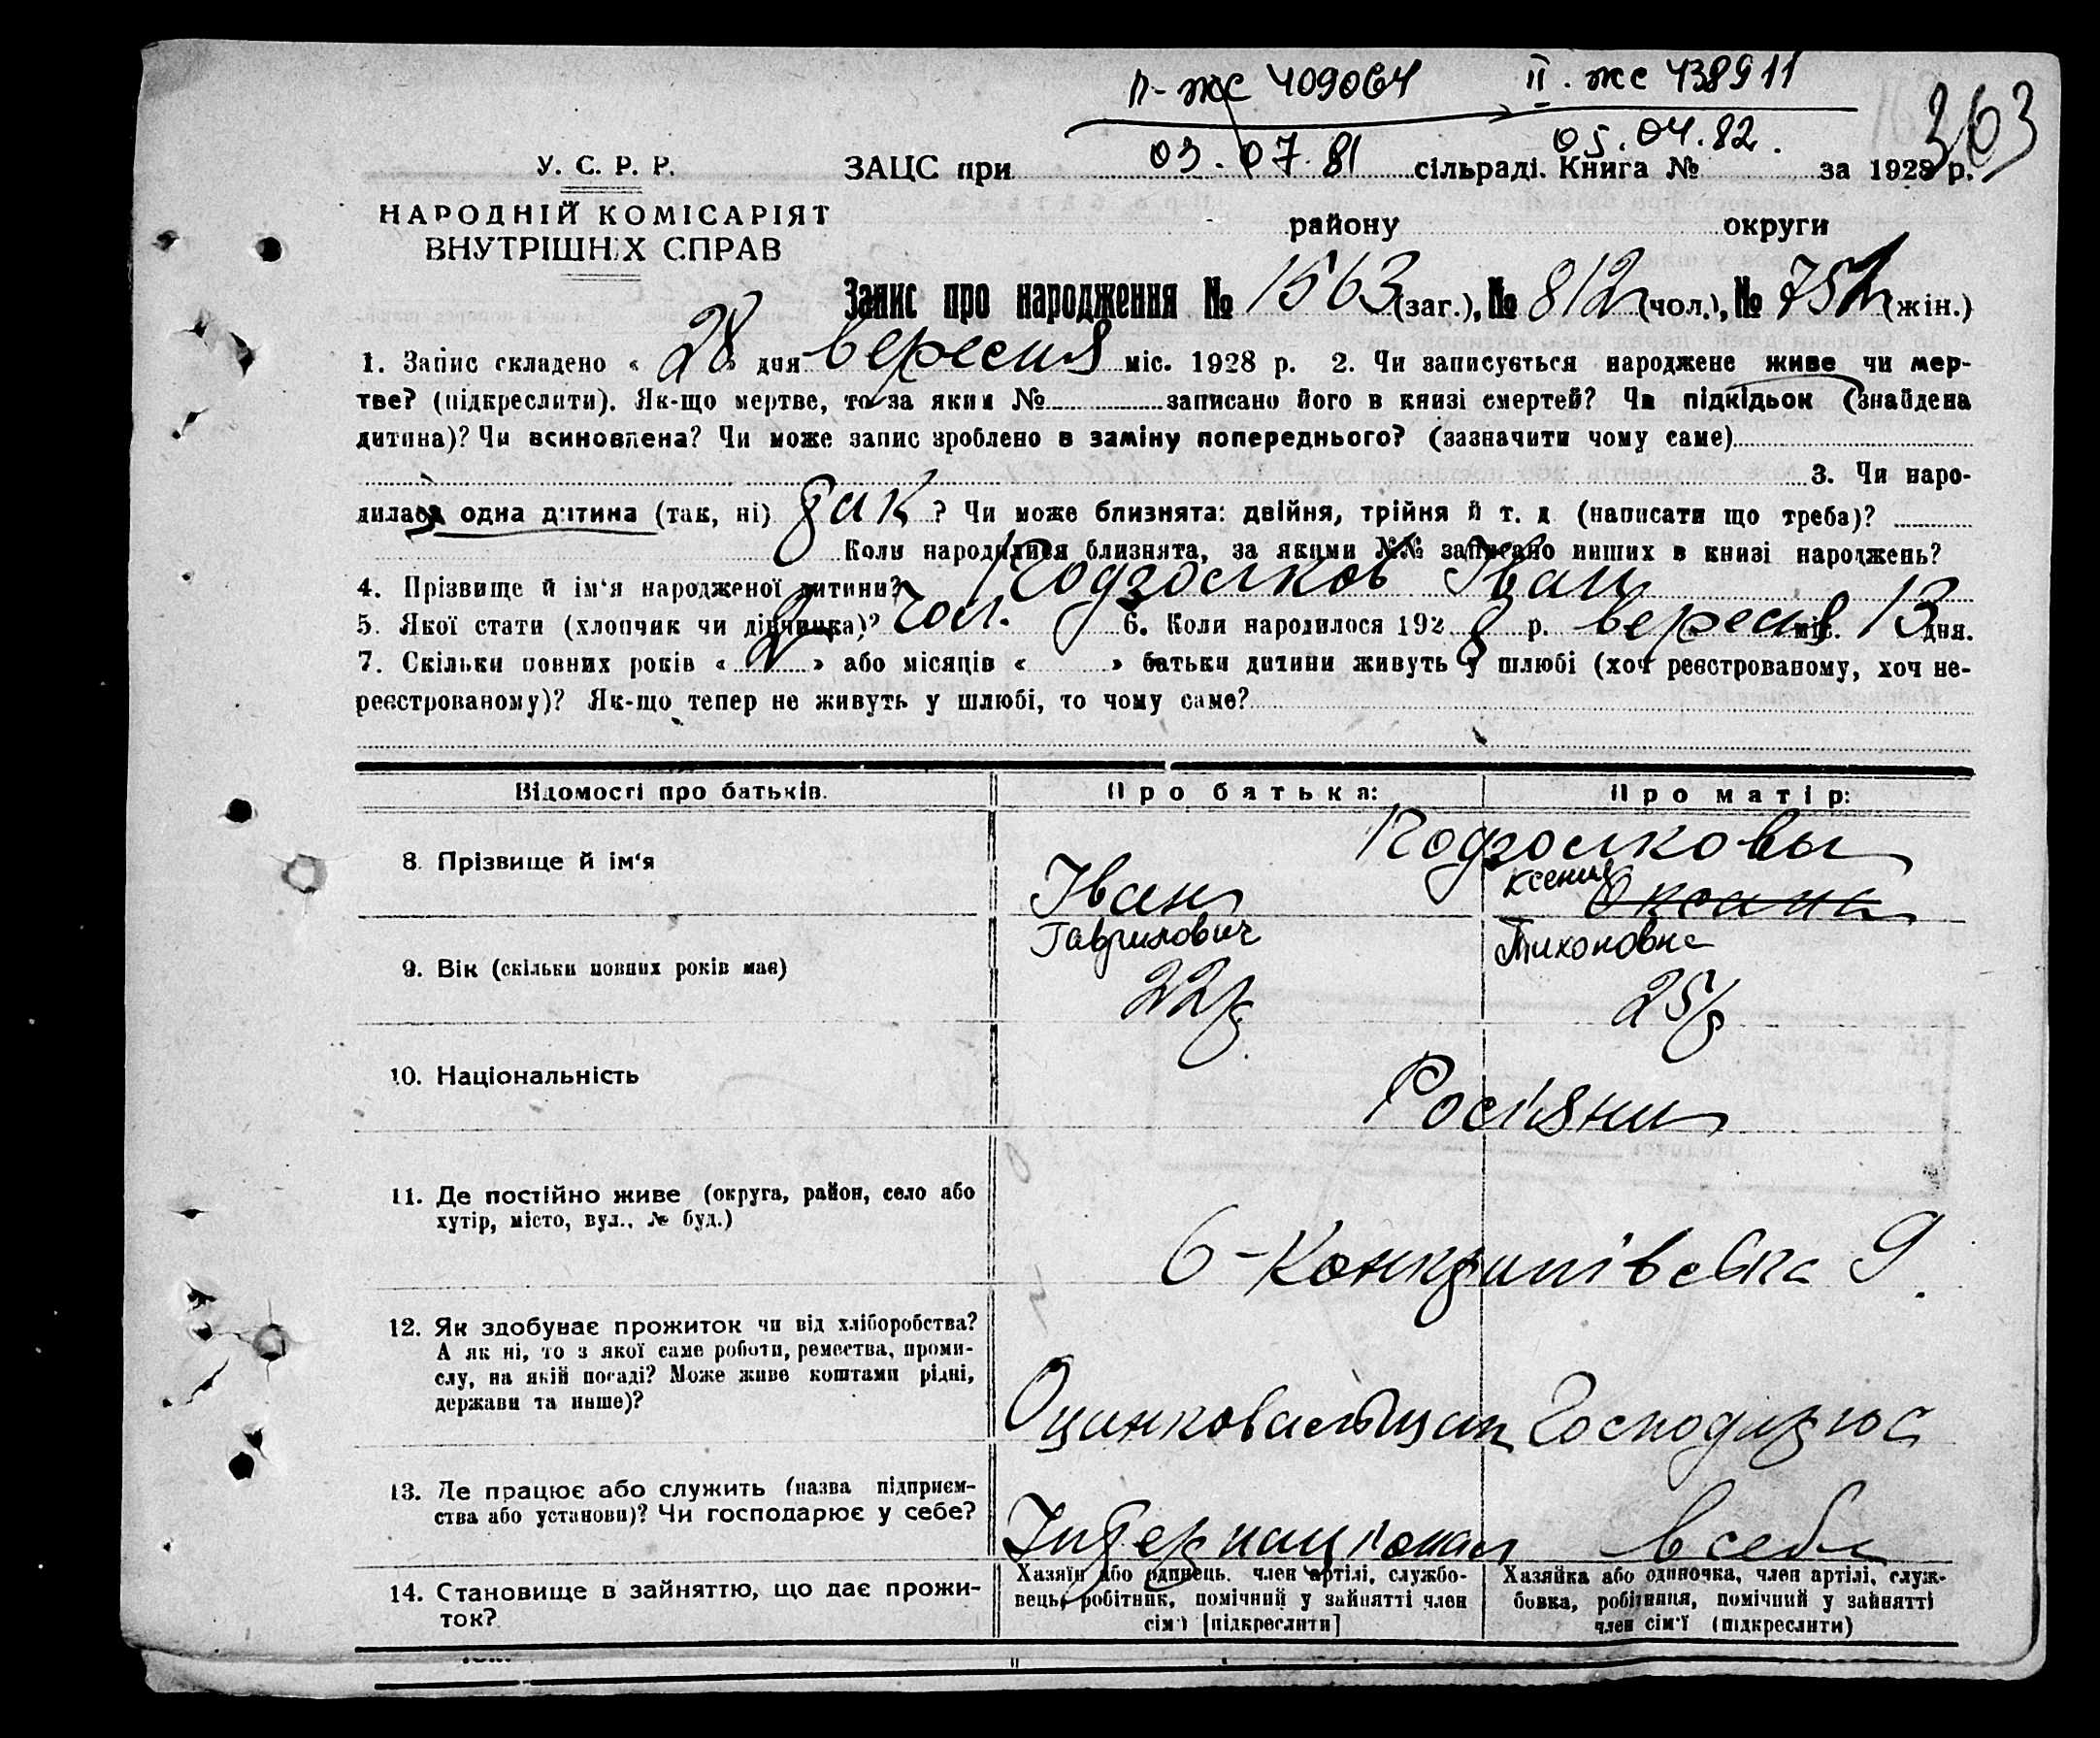 П-ЖС 409064 II. ЖС 438911
363
03.07.81 05.04.82.
У. С. Р. Р.
ЗАЦС при сільраді. Книга № за 1928 р.
НАРОДНІЙ КОМІСАРІЯТ
ВНУТРІШНІХ СПРАВ
району округи
Запис про народження № 1563 (заг.), № 812 (чол.), № 751 (жін.)
1. Запис складено « 28 » дня вересня міс. 1928 р. 2. Чи записується народжене живе чи мер-
тве? (підкреслити). Як-що мертве, то за яким № записано його в книзі смертей? Чи підкідьок (знайдена
дитина)? Чи всиновлена? Чи може запис зроблено в заміну попереднього? (зазначити чому саме)
3. Чи наро-
дилася одна дитина (так, ні) так ? Чи може близнята: двійня, трійня й т. д (написати що треба)?
Коли народилися близнята, за якими №№ записано инших в книзі народжень?
4. Прізвище й ім'я народженої дитини? Подгорнков Іван
5. Якої стати (хлопчик чи дівчинка)? Чол. 6. Коли народилося 1928 р. вересня міс. 13 дня.
7. Скільки повних років « 2 » або місяців « » батьки дитини живуть у шлюбі (хоч реєстрованому, хоч не-
реєстрованому)? Як-що тепер не живуть у шлюбі, то чому саме?
Відомості про батьків. Про батька: Про матір:
8. Прізвище й ім'я
Іван
Гаврилович
Ксения Оксана
Тихоновна
9. Вік (скільки повних років має) 22р 25р
10. Національність Росіяни
11. Де постійно живе (округа, район, село або
хутір, місто, вул., № буд.)
9
12. Як здобуває прожиток чи від хліборобства?
А як ні, то з якої саме роботи, ремества, проми-
слу, на якій посаді? Може живе коштами рідні,
держави та инше)?
Оцинковальщик Господарює
13. Де працює або служить (назва підприєм-
ства або установи)? Чи господарює у себе?
Інтернаціонал в себе
14. Становище в зайняттю, що дає прожи-
ток?
Хазяїн або одинець, член артілі, службо-
вець, робітник, помічний у зайнятті член
сім'ї [підкреслити]
Хазяйка або одиночка, член артілі, служ-
бовка, робітниця, помічний у зайнятті
член сім'ї (підкреслити)